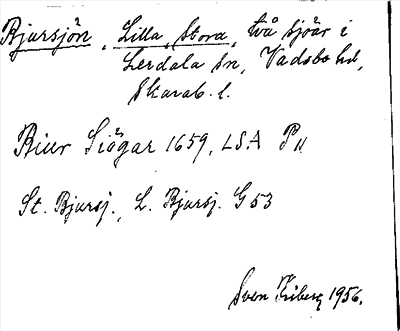 Bjursjön, Lilla, Stora, två sjöar i
Lerdala sn, Vadsbo hd,
Skarab. l.
Biur Siögar 1659, LSA P 11
St. Bjursj., L. Bjursj. G 53
Sven Friberg 1956.